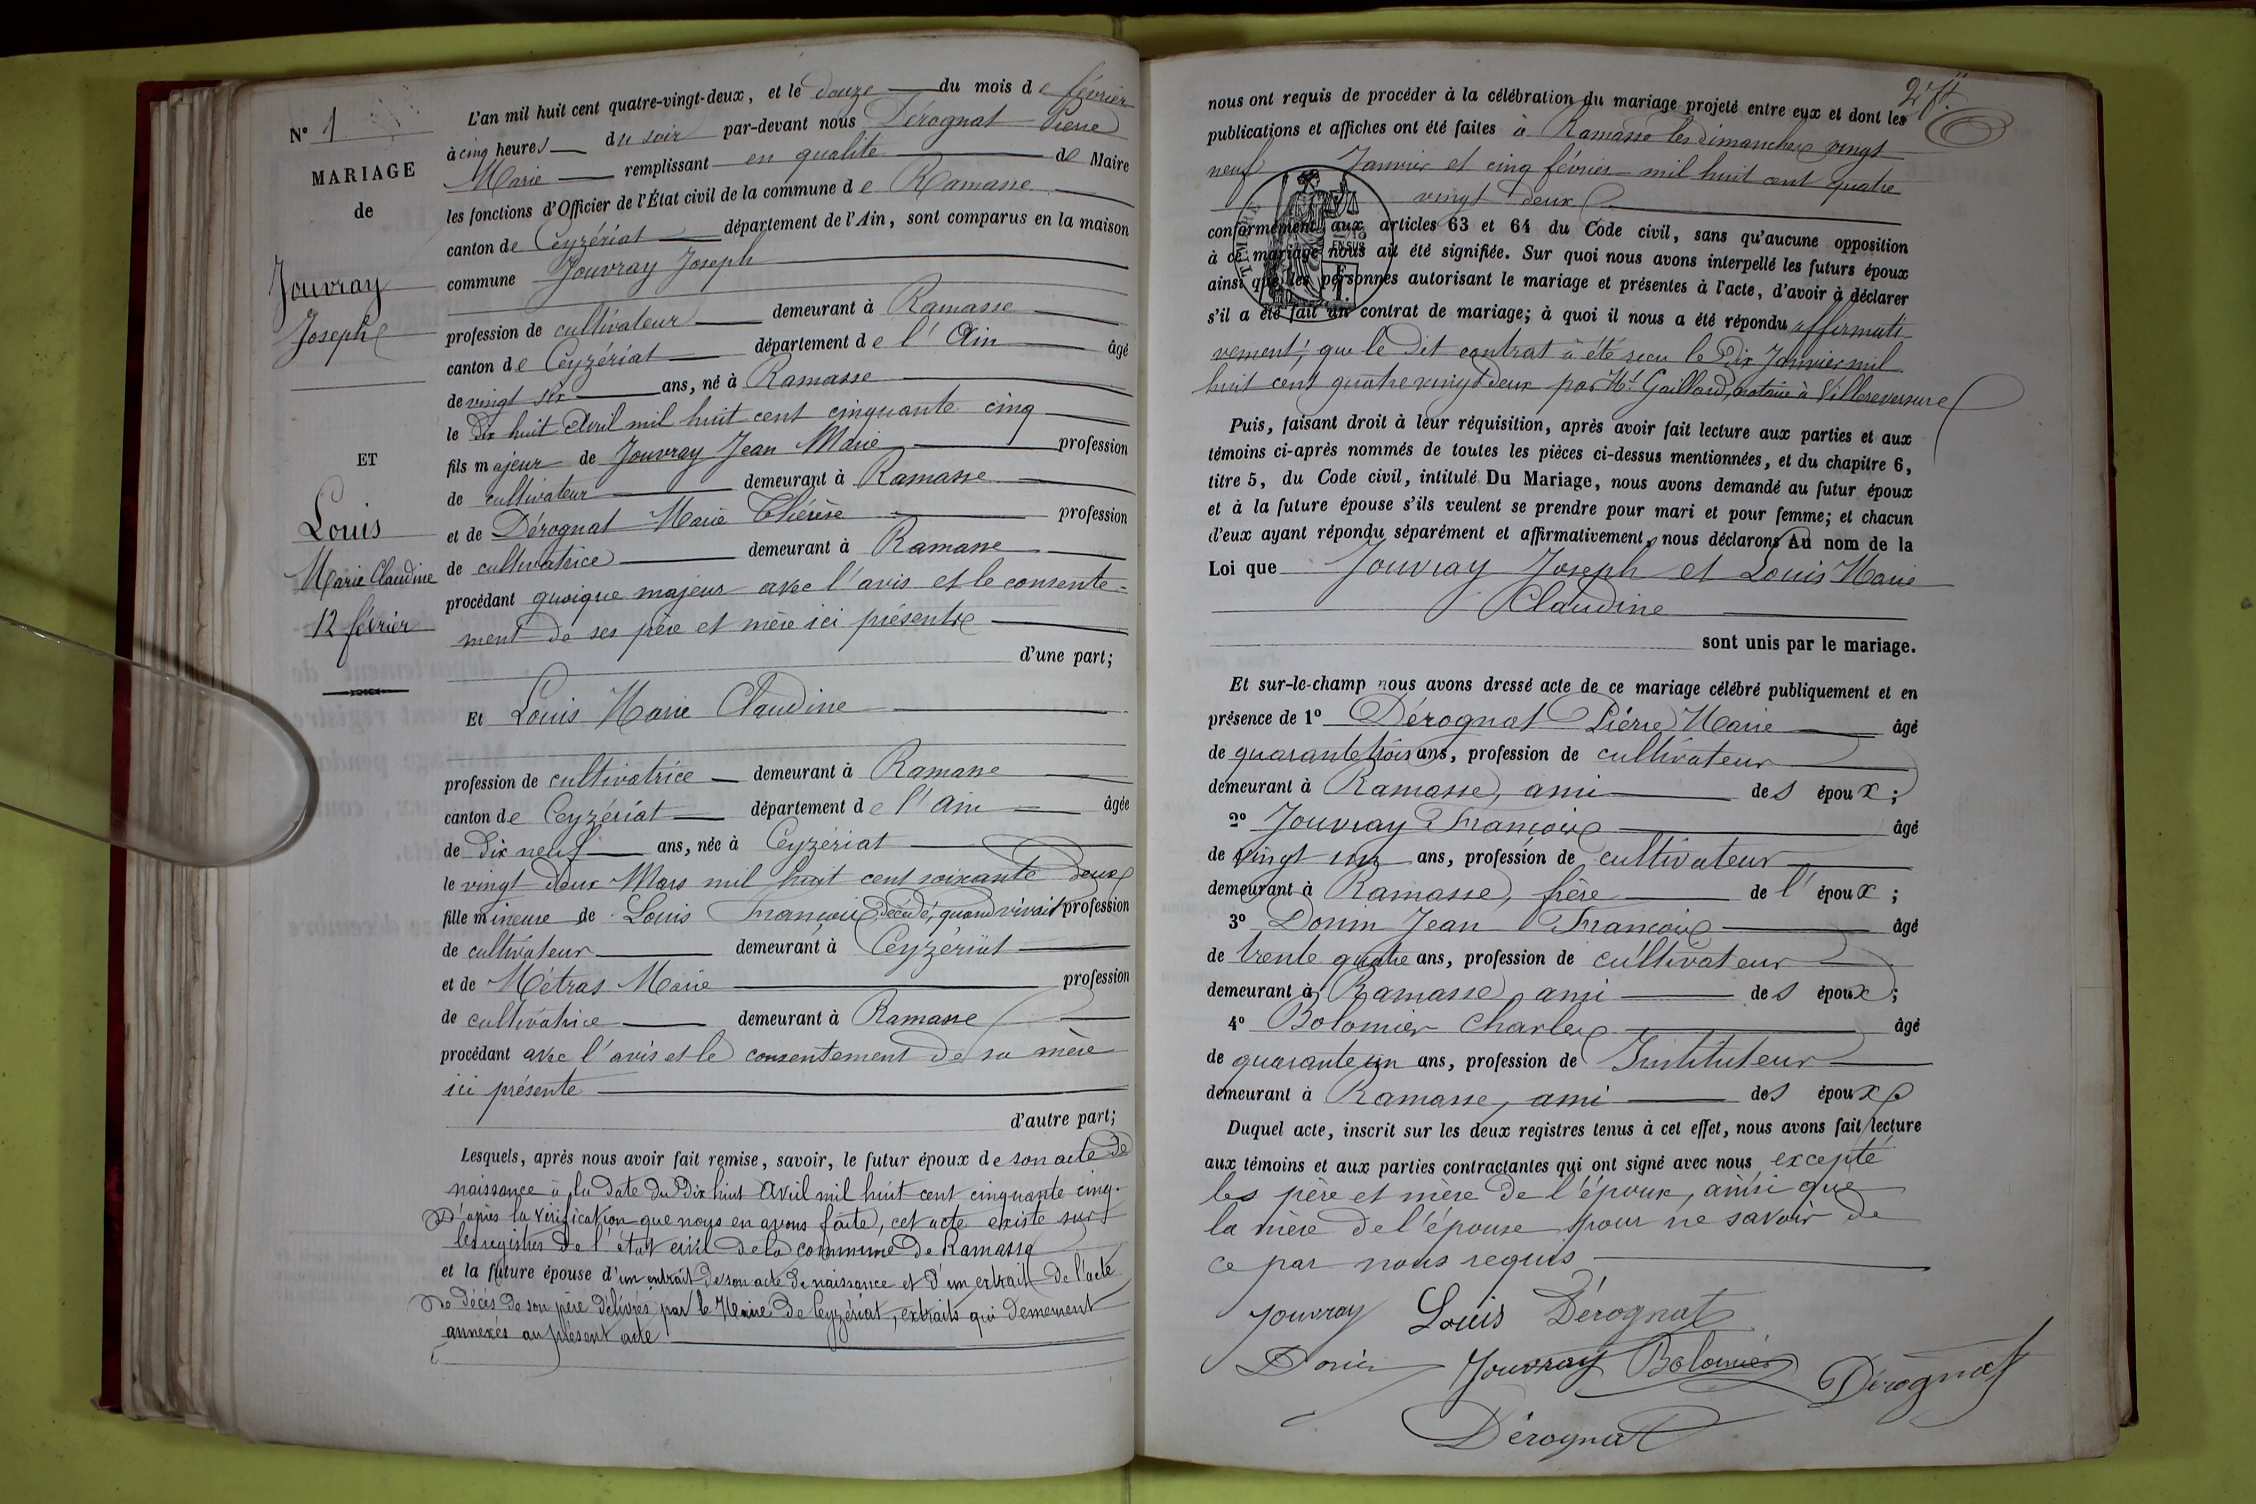 N° 1
MARIAGE
de
Jouvray
Joseph
ET
Louis
Marie Claudine
12 février
L'an mil huit cent quatre-vingt-deux, et le douze du mois de février
à cinq heures du soir par-devant nous Dérognat Pierre
Marie remplissant en qualité de Maire
les fonctions d'Officier de l'État civil de la commune de Ramasse
canton de Ceyzériat département de l'Ain, sont comparus en la maison
commune Jouvray Joseph
profession de cultivateur demeurant à Ramasse
canton de Ceyzériat département de l'Ain âgé
de vingt six ans, né à Ramasse
le dix huit Avril mil huit cent cinquante cinq
fils majeur de Jouvray Jean Marie profession
de cultivateur demeurant à Ramasse
et de Dérognat Marie Thérèse profession
de cultivatrice demeurant à Ramasse
procédant quoique majeur avec l'avis et le consente-
ment de ses père et mère ici présents
d'une part;
Et Louis Marie Claudine
profession de cultivatrice demeurant à Ramasse
canton de Ceyzériat département de l'Ain âgée
de dix neuf ans, née à Ceyzériat
le vingt deux Mars mil huit cent soixante deux
fille mineure de Louis François décédé, quand vivait profession
de cultivateur demeurant à Ceyzériat
et de Métras Marie profession
de cultivatrice demeurant à Ramasse
procédant avec l'avis et le consentement de sa mère
ici présente
d'autre part;
Lesquels, après nous avoir fait remise, savoir, le futur époux de son acte de
naissance à la date du Dix huit Avril mil huit cent cinquante cinq.
D'après la vérification que nous en avons faite, cet acte existe sur
les registres de l'état civil de la commune de Ramasse
et la future épouse d'un extrait de son acte de naissance et d'un extrait de l'acte
de décès de son père délivrés par le Maire de Ceyzériat, extraits qui demeurent
annexés au présent acte.
nous ont requis de procéder à la célébration du mariage projeté entre eux et dont les
publications et affiches ont été faites à Ramasse les dimanches vingt
neuf Janvier et cinq février mil huit cent quatre
vingt deux
conformément aux articles 63 et 64 du Code civil, sans qu'aucune opposition
à ce mariage nous ait été signifiée. Sur quoi nous avons interpellé les futurs époux
ainsi que les personnes autorisant le mariage et présentes à l'acte, d'avoir à déclarer
s'il a été fait un contrat de mariage; à quoi il nous a été répondu affirmati
vement; que le dit contrat a été reçu le Dix Janvier mil
huit cent quatre vingt deux par Mt Gaillard, notaire à Villereversure
Puis, faisant droit à leur réquisition, après avoir fait lecture aux parties et aux
témoins ci-après nommés de toutes les pièces ci-dessus mentionnées, et du chapitre 6,
titre 5, du Code civil, intitulé Du Mariage, nous avons demandé au futur époux
et à la future épouse s'ils veulent se prendre pour mari et pour femme; et chacun
d'eux ayant répondu séparément et affirmativement, nous déclarons Au nom de la
Loi que Jouvray Joseph et Louis Marie
Claudine
sont unis par le mariage.
Et sur-le-champ nous avons dressé acte de ce mariage célébré publiquement et en
présence de 1° Dérognat Pierre Marie âgé
de quarante trois ans, profession de cultivateur
demeurant à Ramasse, ami des époux;
2° Jouvray François âgé
de vingt ans, profession de cultivateur
demeurant à Ramasse, frère de l'époux;
3° Donin Jean François âgé
de trente quatre ans, profession de cultivateur
demeurant à Ramasse, ami des époux;
4° Bolomier Charles âgé
de quarante un ans, profession de Instituteur
demeurant à Ramasse, ami des époux
Duquel acte, inscrit sur les deux registres tenus à cet effet, nous avons fait lecture
aux témoins et aux parties contractantes qui ont signé avec nous excepté
les père et mère de l'époux, ainsi que
la mère de l'épouse pour ne savoir de
ce par nous requis
Jouvray Louis Dérognat
Donin Jouvray Bolomier Dérognat
Dérognat